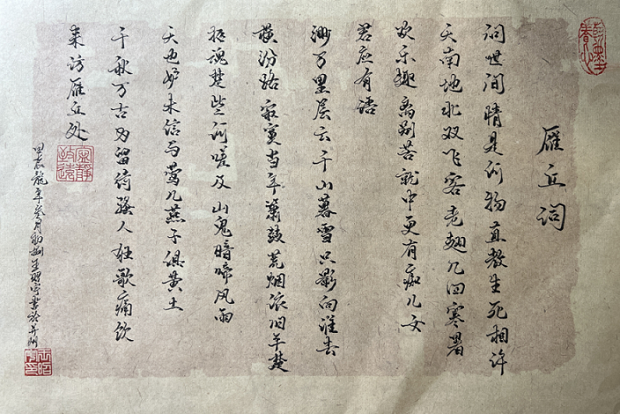 雁丘词
问世间情是何物直教生死相许
天南地北双飞客老翅几回寒暑
欢乐趣离别苦就中更有痴儿女
君应有语
渺万里层云千山暮雪只影向谁去
横汾路寂寞当年箫鼓荒烟依旧平楚
招魂楚些何嗟及山鬼暗啼风雨
天也妒未信与莺儿燕子俱黄土
千秋万古为留待骚人狂歌痛饮
来访雁丘处
宁静致远